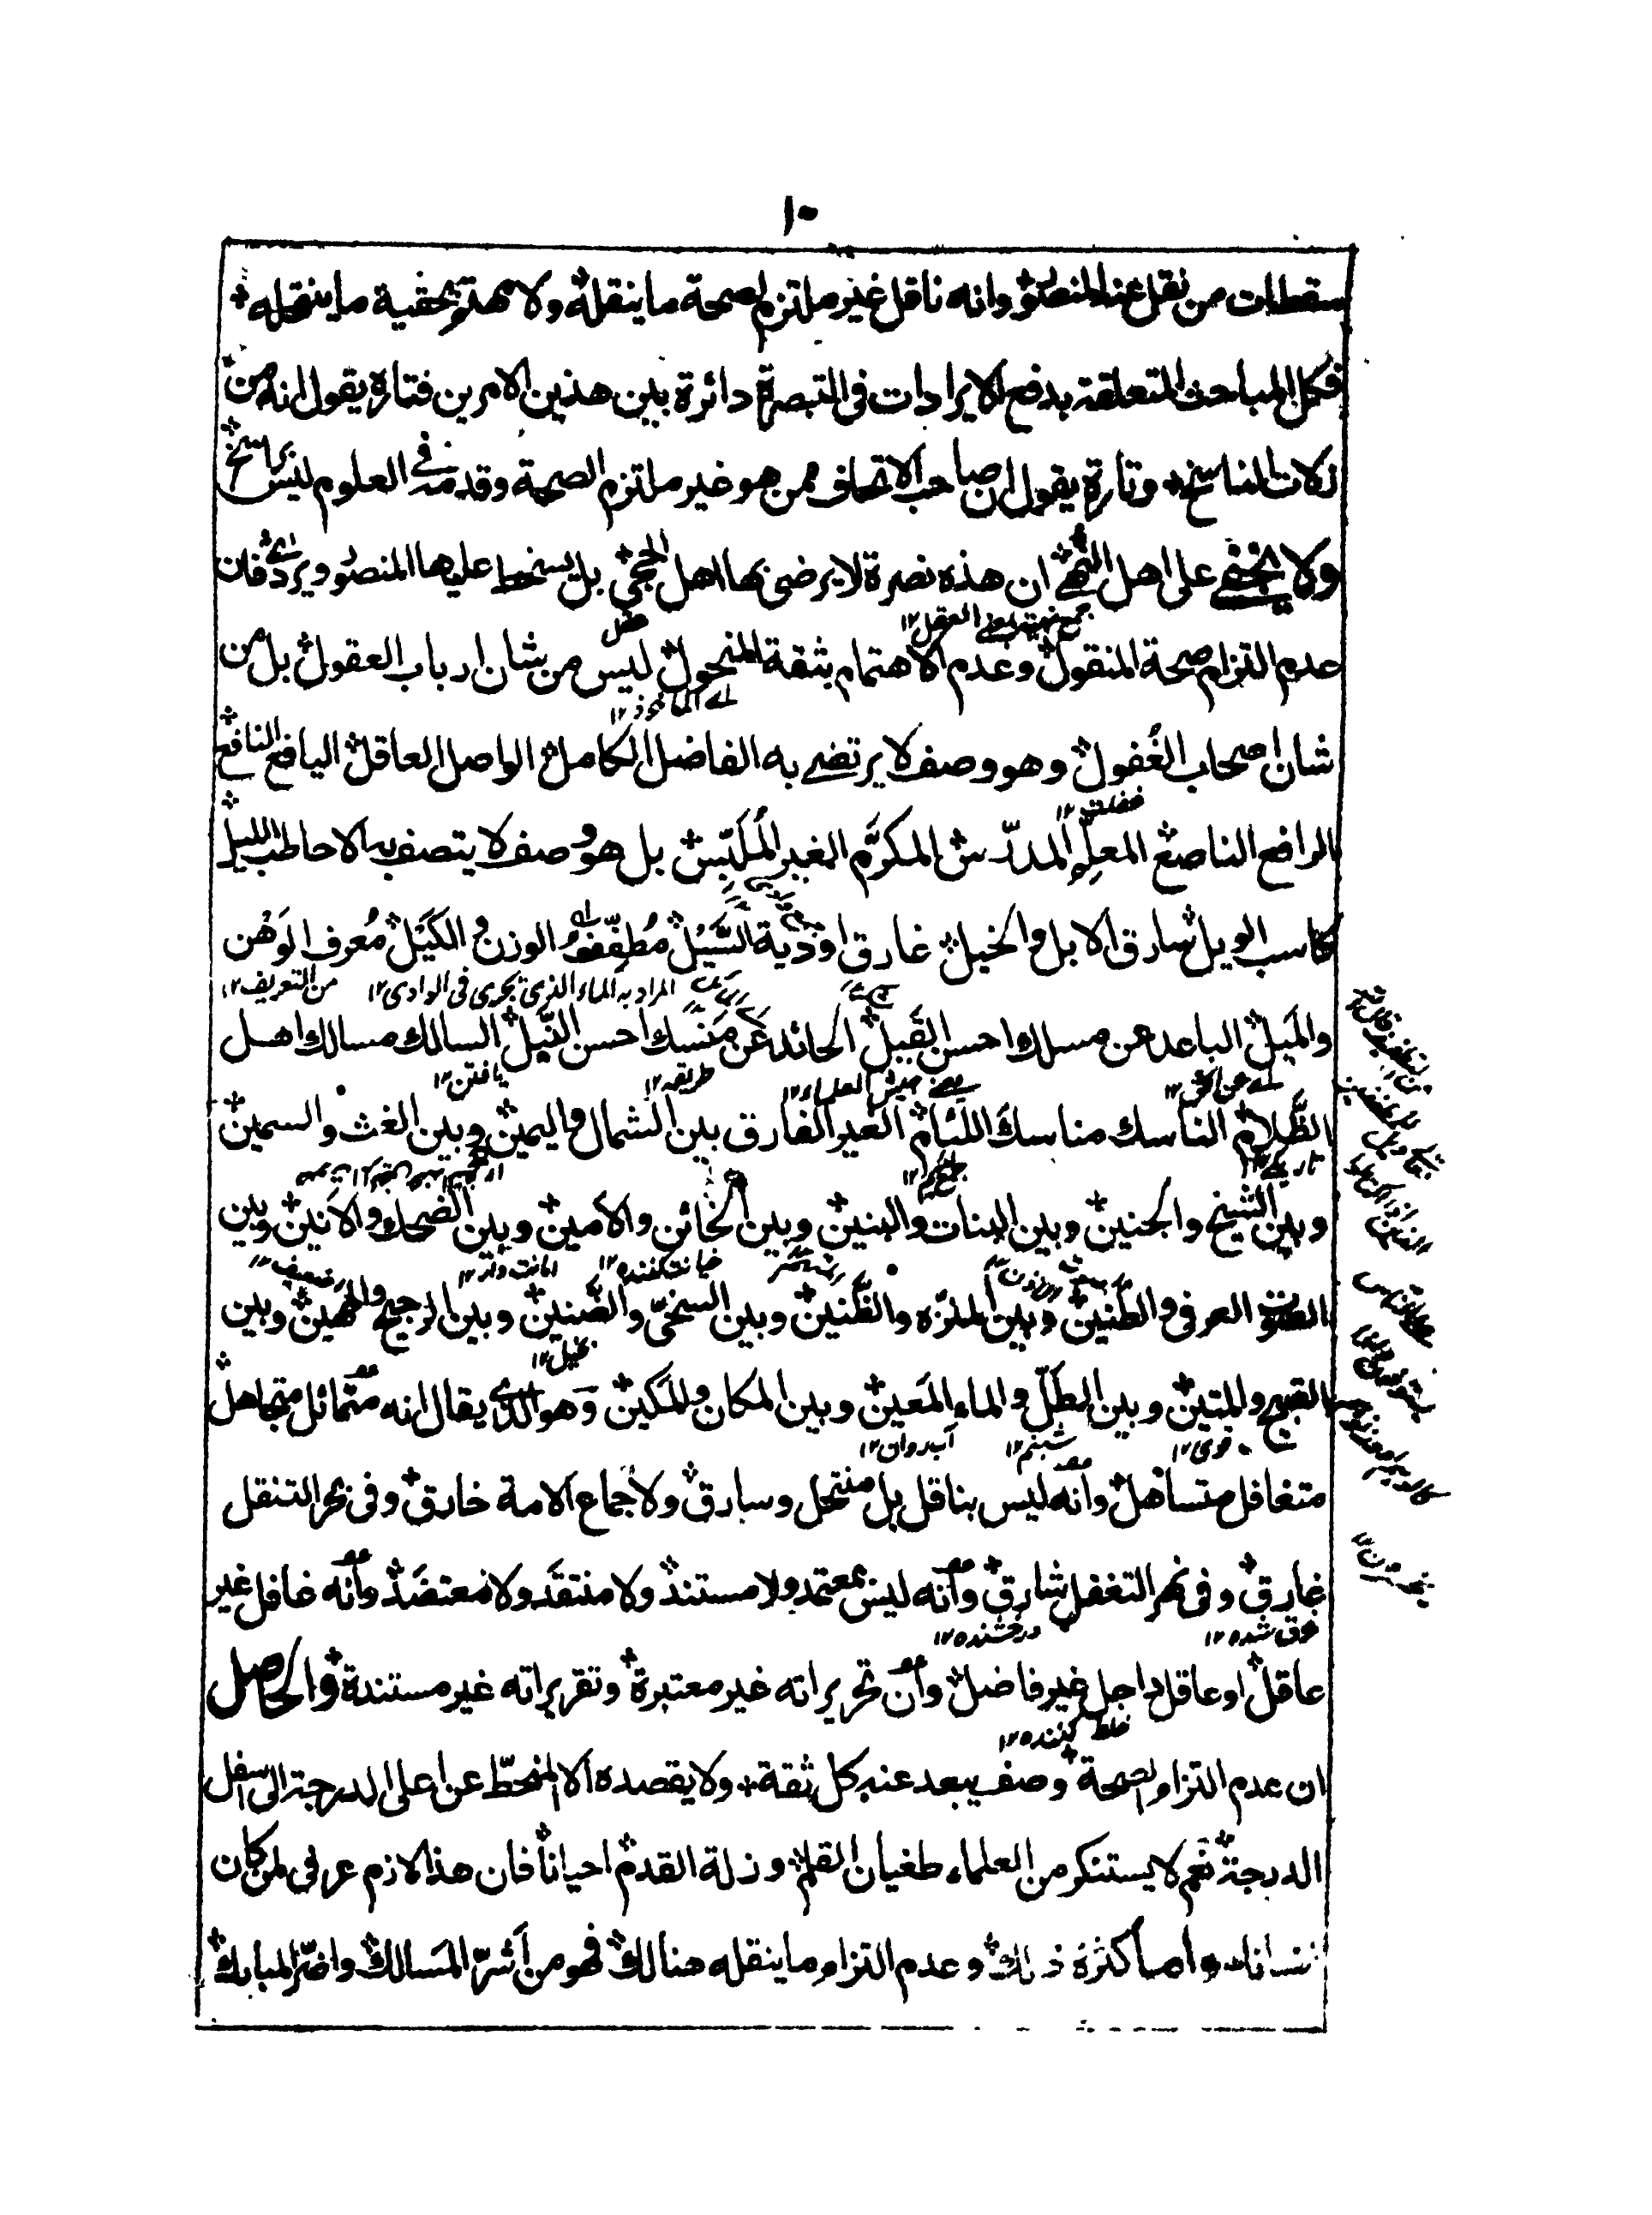 ١٠
سقطات من نقل عنه المنصور وانه ناقل غير ملتزم لصحة ما ينقله ولا مهتم بحقية ما ينقله
فكل المباحث المتعلقة بدفع الايرادات فى التبصرة دائرة بين هذين الامرين فتارة يقول انه من
زلات الناسخ وتارة يقول ان صاحب الاتحاف ممن هو غير ملتزم الصحة وقدمه فى العلوم ليس براسخ
ولا يخفى على اهل النهى ان هذه نصرة لا يرضى بها اهل الحجى بل يسخط عليها المنصور ويردى فان
جمع نهية بمعنى العقل ١٢ عقل
عدم التزام صحة المنقول وعدم الاهتمام بثقة المنحول ليس من شان ارباب العقول بل من
اے الماخوذ ١٢
شان اصحاب الغُفول وهو وصف لا يرتضى به الفاضل الكامل الواصل العاقل اليافع النافع
غفلت ١٢
الرافع الناصع المعلِّم المدرّس المكرَّم الغير المُلَبّس بل هو وصف لا يتصف به الا حاطب الليل
كاسب الويل سارق الابل والخيل غارق اودية السَّيْل مُطفّف الوزن والكَيْل مُعرف الوَهْن
المراد به الماء الذى يجرى فى الوادى ١٢ من التعريف ١٢
والمَيل الباعد عن مسلك احسن القَبيل الحائد عن مَنْسَك احسن النَّيل السالك مسالك اهل
اے عن الحق ١٢ يعنى جيش العلماء ١٢ طريقه ١٢ يافتن ١٢
الظَّلام الناسك مناسك اللئام الغير الفارق بين الشمال واليمين وبين الغث والسمين
تاريكى ١٢
وبين الشيخ والجنين وبين البنات والبنين وبين الخائن والامين وبين الضحك والانين وبين
خيانت كننده ١٢ امانت دار ١٢ ضعيف ١٢
الصوت العرفى والطنين وبين المنزّه والظَّنين وبين السخىّ والضَّنين وبين الرجيح والمهين وبين
بخيل ١٢
القبيح والمتين وبين الطَلّ والماء المَعين وبين المكان والمَكين وهو الذى يقال انه متمائل متجاهل
قوى ١٢ شبنم ١٢ آب روان ١٢
متغافل متساهل وانه ليس بناقل بل منتحل وسارق ولاجماع الامة خارق وفى بحر التنقل
غارق وفى نهر التغفل شارق وانه ليس بمعتمد ولا مستند ولا منتقَد ولا معتضَد وانه غافل غير
غرق شده ١٢ درخشنده ١٢
عاقل او عاقل داجل غير فاضل وان تحريراته غير معتبرة وتقريراته غير مستندة والحاصل
خلط كننده ١٢
ان عدم التزام الصحة وصف يبعد عنه كل ثقة ولا يقصده الا المنحطّ عن اعلى الدرجة الى اسفل
الدرجة نعم لا يستنكر من العلماء طغيان القلم وزلة القدم احيانا فان هذا لازم عرفى لمن كان
انسانا واما كثرة ذلك وعدم التزام ما ينقله هنالك فهو من اَشرّ المَسالك واضرّ المبارك